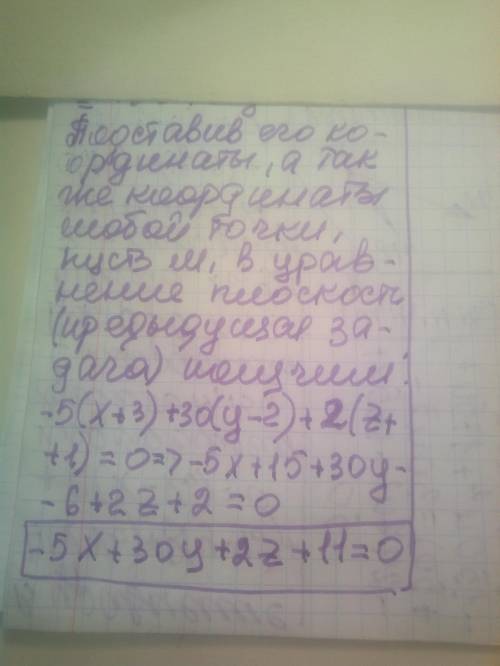 Подставив его ко-
ординаты, а так
же координаты
любой точки,
пусть M, в урав-
нение плоскость
(предыдущая за-
дача) получим:
-5(x+3)+30(y-2)+2(z+
+1)=0=>-5x+15+30y-
-6+2z+2=0
-5x+30y+2z+11=0